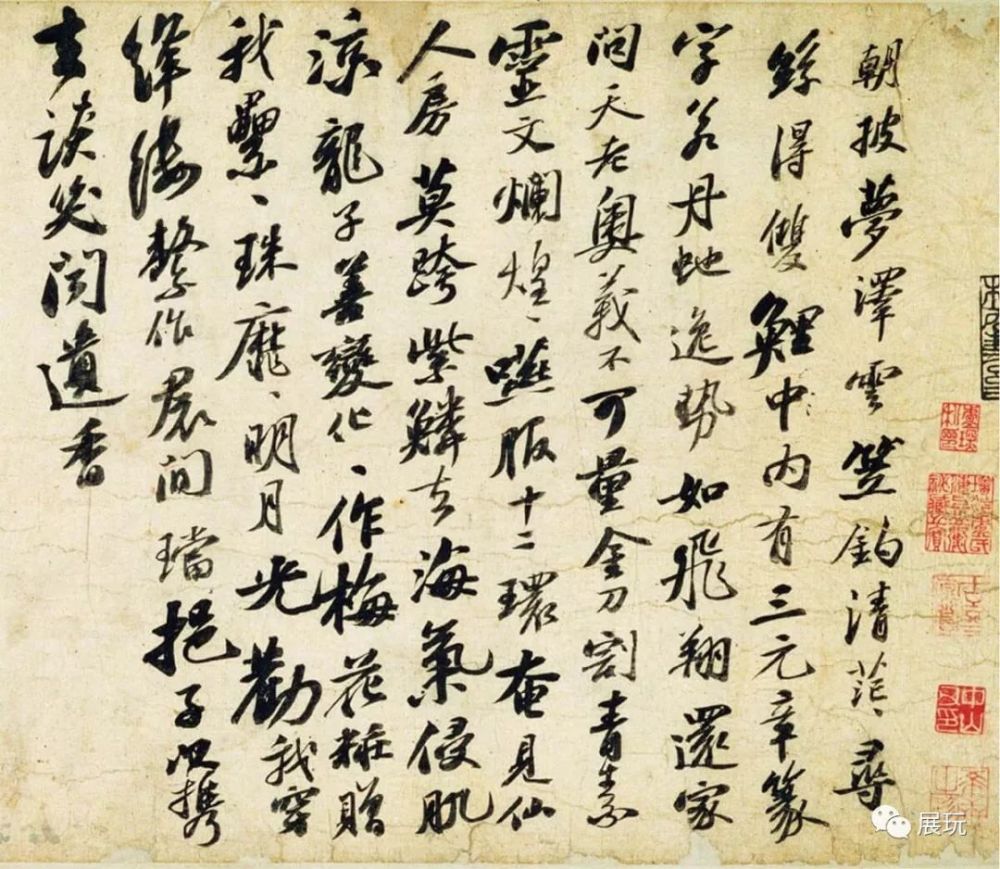 朝披夢澤雲笠釣清茫〻尋
絲得雙鯉中內有三元章篆
字若丹虵逸勢如飛翔還家
問天老奧義不可量金刀割青素
靈文爛煌〻嚥服十二環奄見仙
人房莫跨紫鱗去海氣侵肌
涼龍子善變化〻作梅花粧贈
我纍〻珠靡〻明月光勸我穿
絳縷繫作裙間璫挹子以攜
去談笑聞遺香
展玩